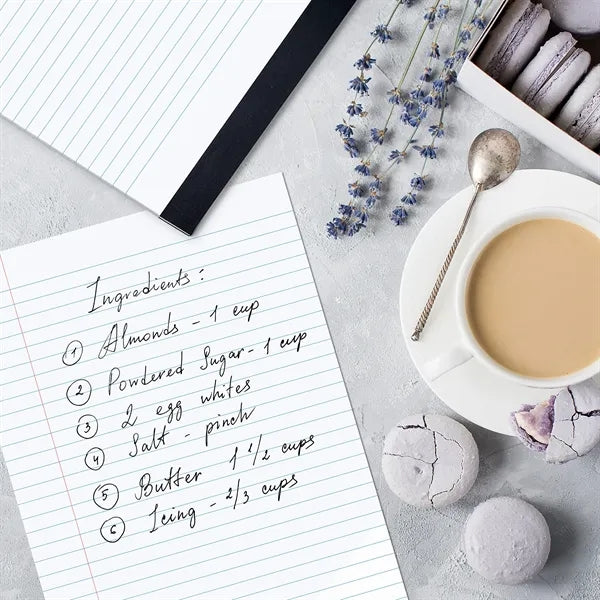 Ingredients:
1 Almonds - 1 cup
2 Powdered Sugar - 1 cup
3 2 egg whites
4 Salt - pinch
5 Butter 1 1/2 cups
6 Icing - 2/3 cups